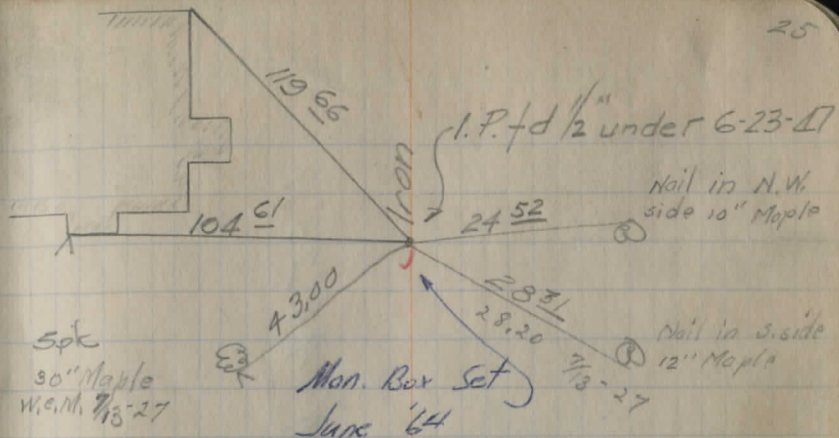 25
119 66
I.P. fd 1/2" under 6-23-47
Iron
Nail in N.W.
side 10" Maple
104 61
24 52
43.00
28 31
28.20
7/13-27
Nail in S. side
12" Maple
Spk
30" Maple
W.e.M. 7/13-27
Mon. Box Set
June '64